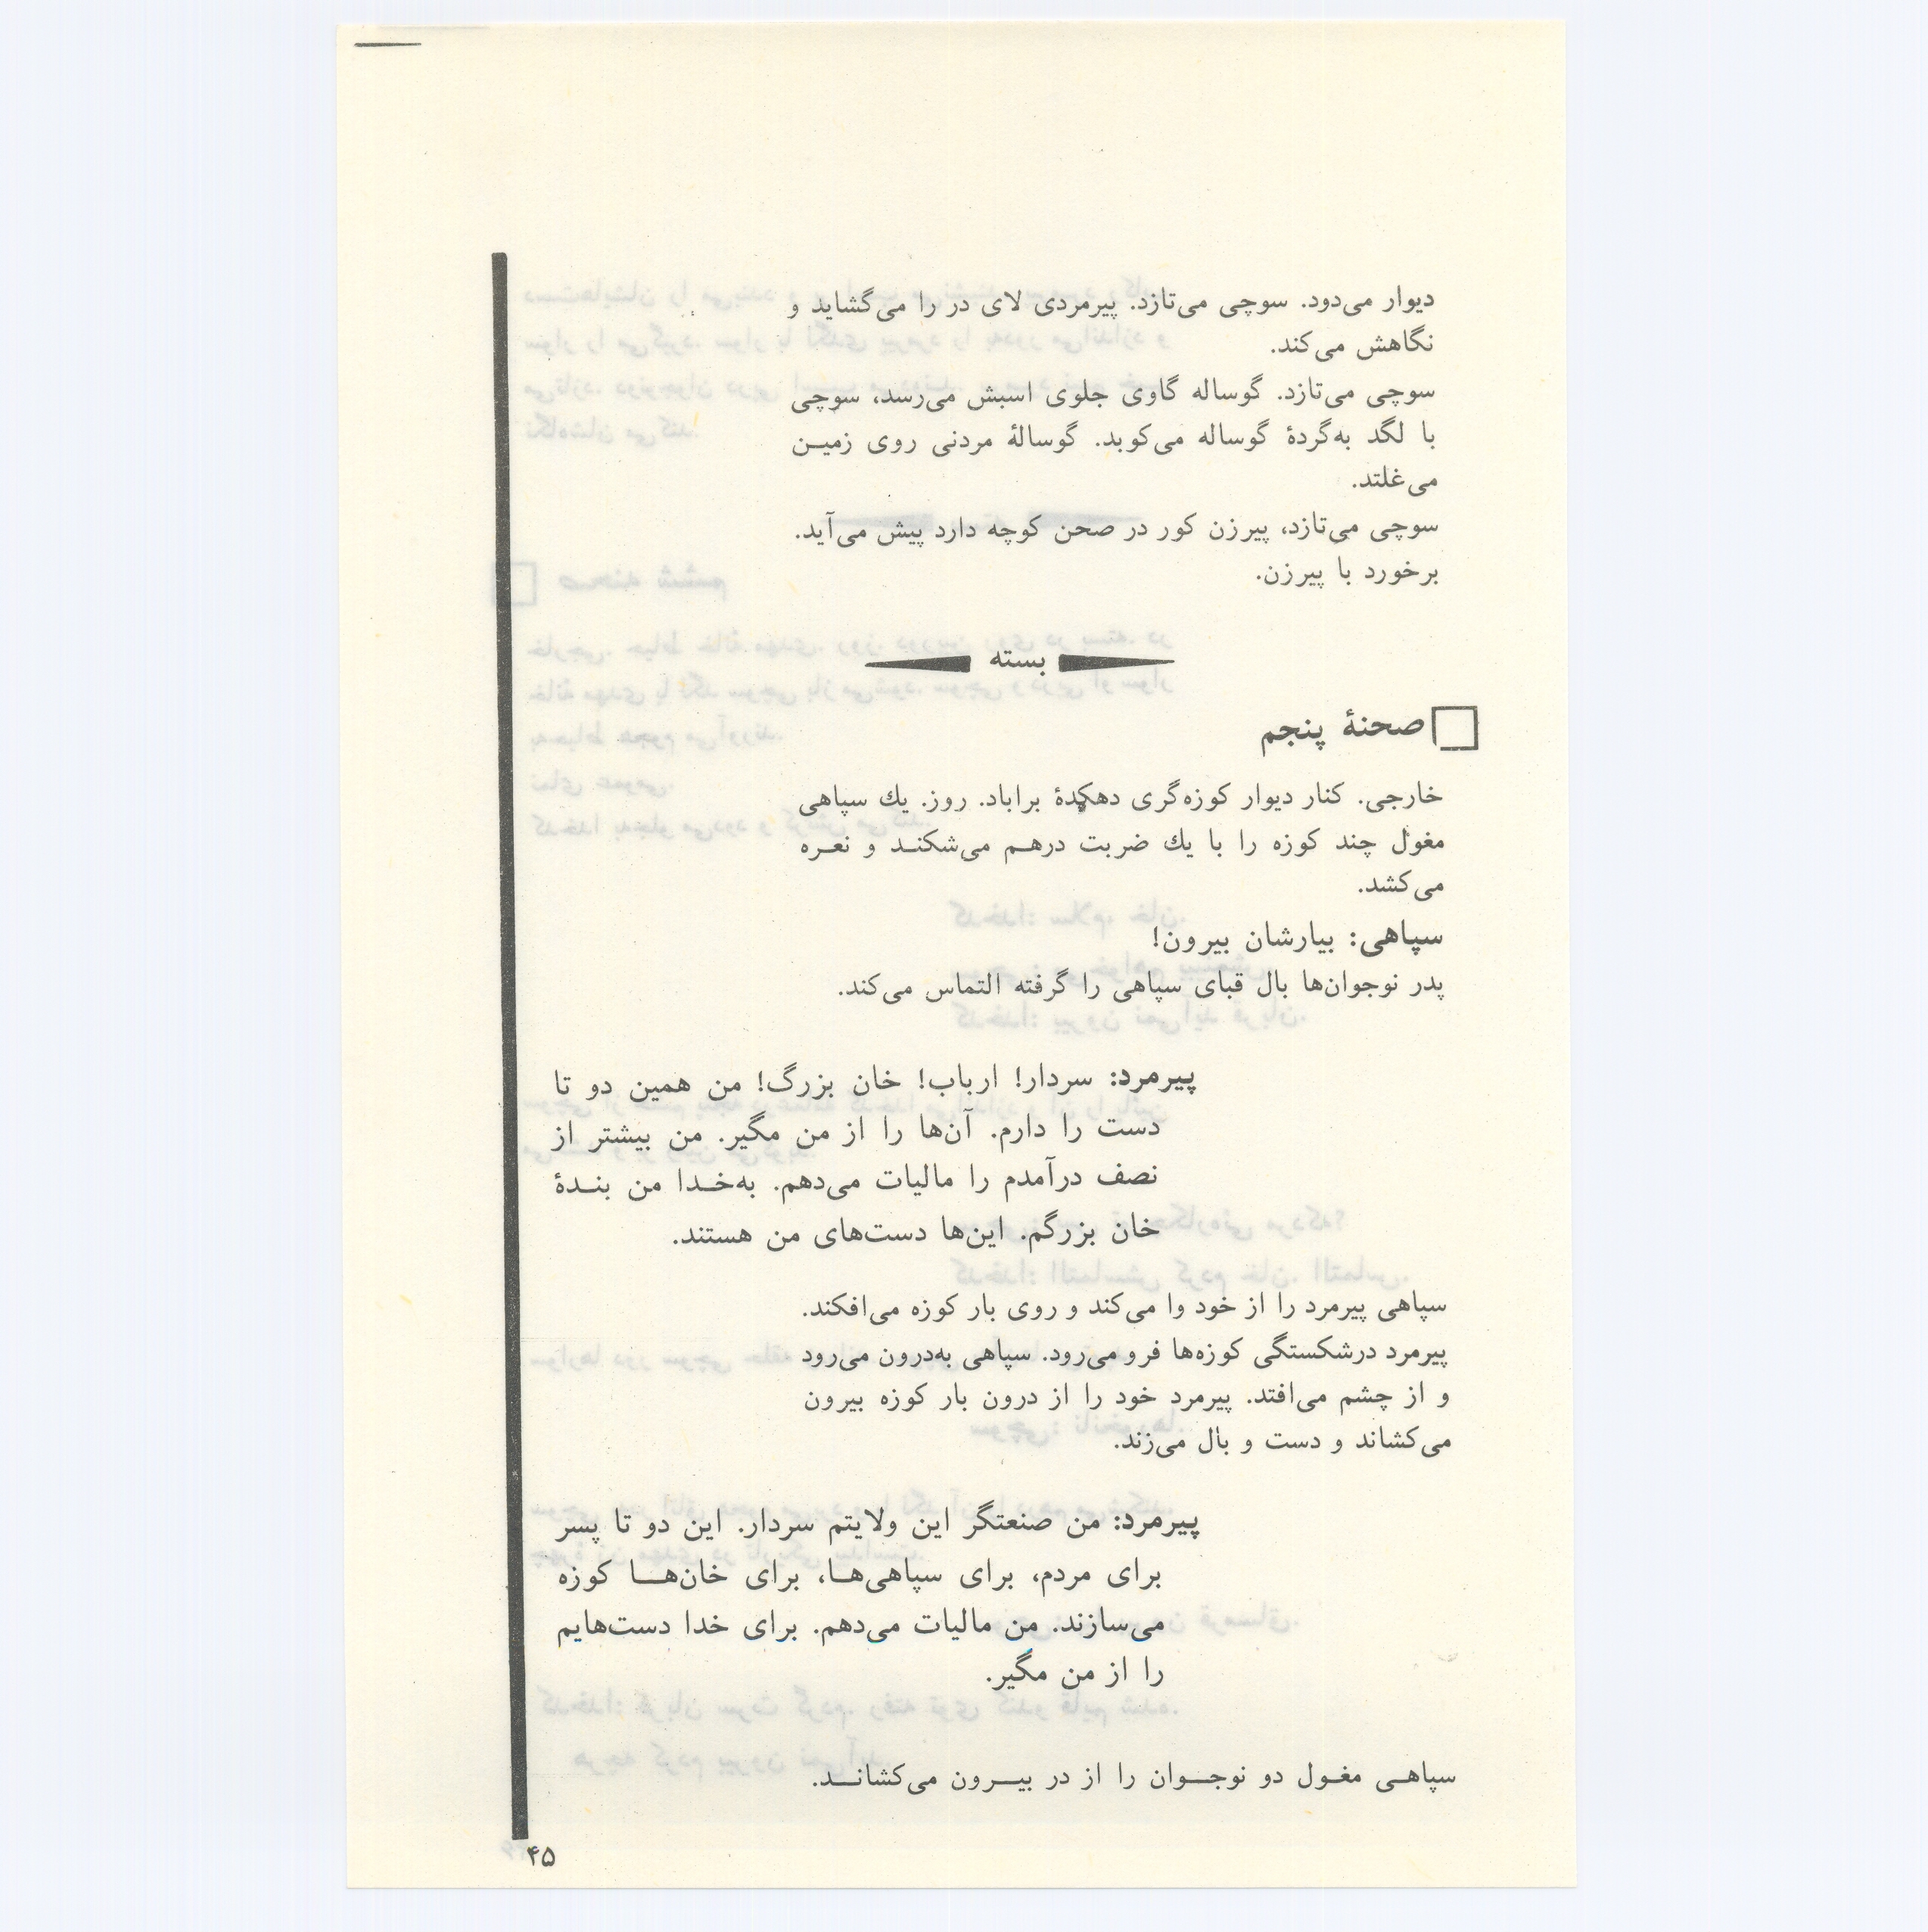 دیوار می‌دود. سوچی می‌تازد. پیرمردی لای در را می‌گشاید و
نگاهش می‌کند.
سوچی می‌تازد. گوساله گاوی جلوی اسبش می‌رسد، سوچی
با لگد به‌گردهٔ گوساله می‌کوبد. گوسالهٔ مردنی روی زمیـن
می‌غلتد.
سوچی می‌تازد، پیرزن کور در صحن کوچه دارد پیش می‌آید.
برخورد با پیرزن.
بسته
صحنهٔ پنجم
خارجی. کنار دیوار کوزه‌گری دهکدهٔ براباد. روز. یك سپاهی
مغول چند کوزه را با یك ضربت درهـم می‌شکنـد و نعـره
می‌کشد.
سپاهی: بیارشان بیرون!
پدر نوجوان‌ها بال قبای سپاهی را گرفته التماس می‌کند.
پیرمرد: سردار! ارباب! خان بزرگ! من همین دو تا
دست را دارم. آن‌ها را از من مگیر. من بیشتر از
نصف درآمدم را مالیات می‌دهم. به‌خـدا من بنـدهٔ
خان بزرگم. این‌ها دست‌های من هستند.
سپاهی پیرمرد را از خود وا می‌کند و روی بار کوزه می‌افکند.
پیرمرد درشکستگی کوزه‌ها فرو می‌رود. سپاهی به‌درون می‌رود
و از چشم می‌افتد. پیرمرد خود را از درون بار کوزه بیرون
می‌کشاند و دست و بال می‌زند.
پیرمرد: من صنعتگر این ولایتم سردار. این دو تا پسر
برای مردم، برای سپاهی‌هـا، برای خان‌هـا کوزه
می‌سازند. من مالیات می‌دهم. برای خدا دست‌هایم
را از من مگیر.
سپاهـی مغـول دو نوجـوان را از در بیـرون می‌کشانـد.
۴۵